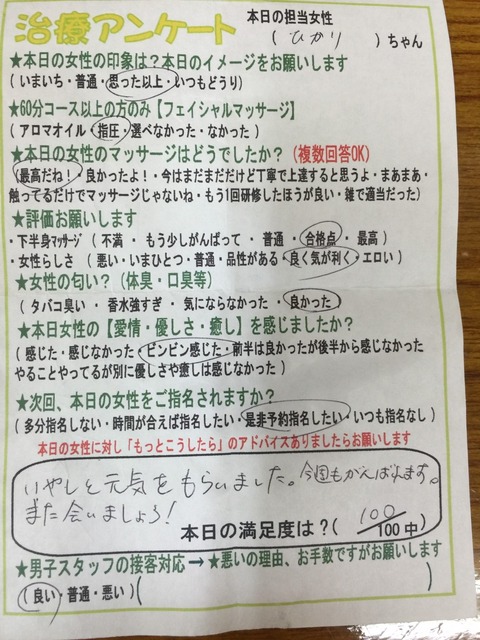 治療アンケート
本日の担当女性
( ひかり )ちゃん
★本日の女性の印象は?本日のイメージをお願いします
(いまいち・普通・思った以上・いつもどうり)
★60分コース以上の方のみ【フェイシャルマッサージ】
(アロマオイル・指圧・選べなかった・なかった)
★本日の女性のマッサージはどうでしたか?(複数回答OK)
(最高だね!・良かったよ!・今はまだまだだけど丁寧で上達すると思うよ・まあまあ・
触ってるだけでマッサージじゃないね・もう1回研修したほうが良い・雑で適当だった)
★評価お願いします
・下半身マッサージ ( 不満 ・ もう少しがんばって ・ 普通 ・ 合格点 ・ 最高 )
・女性らしさ ( 悪い・いまひとつ・普通・品性がある・良く気が利く・エロい )
★女性の匂い?(体臭・口臭等)
( タバコ臭い ・ 香水強すぎ ・ 気にならなかった ・ 良かった )
★本日女性の【愛情・優しさ・癒し】を感じましたか?
(感じた・感じなかった・ビンビン感じた・前半は良かったが後半から感じなかった
やることやってるが別に優しさや癒しは感じなかった)
★次回、本日の女性をご指名されますか?
(多分指名しない・時間が合えば指名したい・是非予約指名したい・いつも指名なし)
本日の女性に対し「もっとこうしたら」のアドバイスありましたらお願いします
いやしと元気をもらいました。今週もがんばれます。
また会いましょう!
本日の満足度は?( 100/100中)
★男子スタッフの接客対応→★悪いの理由、お手数ですがお願いします
(良い・普通・悪い)( )